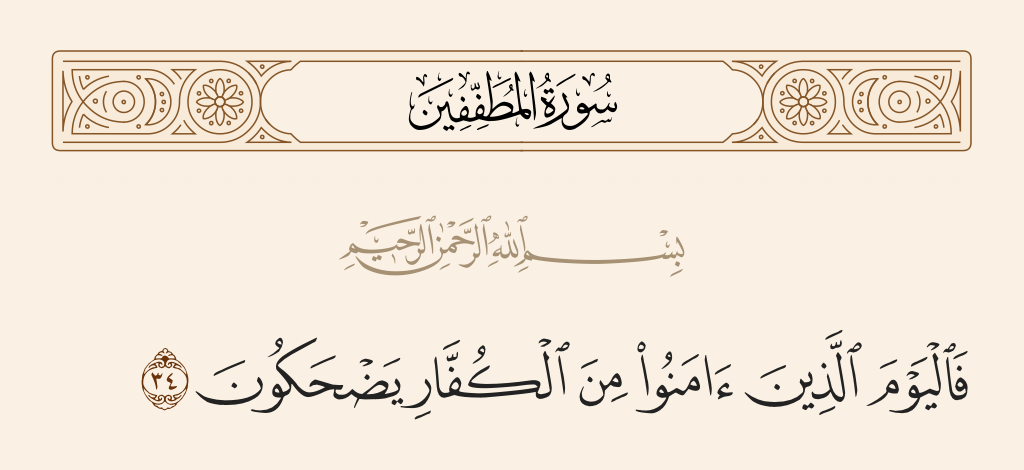 سُورَةُ المُطَفِّفِينَ
بِسْمِ ٱللَّهِ ٱلرَّحْمَٰنِ ٱلرَّحِيمِ
فَٱلْيَوْمَ ٱلَّذِينَ ءَامَنُوا۟ مِنَ ٱلْكُفَّارِ يَضْحَكُونَ ٣٤